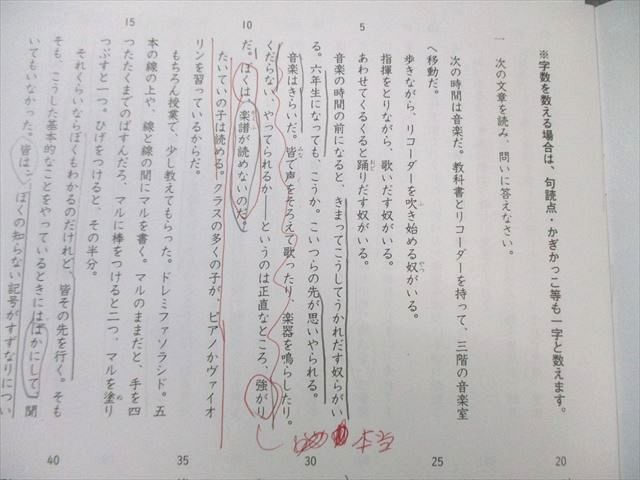 ※字数を数える場合は、句読点・かぎかっこ等も一字と数えます。
一　次の文章を読み、問いに答えなさい。
次の時間は音楽だ。教科書とリコーダーを持って、三階の音楽室
へ移動だ。
歩きながら、リコーダーを吹き始める奴がいる。
指揮をとりながら、歌いだす奴がいる。
あわせてくるくると踊りだす奴がいる。
音楽の時間の前になると、きまってこうしてうかれだす奴らがい
る。六年生になっても、こうか。こいつらの先が思いやられる。
音楽はきらいだ。皆で声をそろえて歌ったり、楽器を鳴らしたり。
くだらない、やってられるか――というのは正直なところ、強がり
だ。ぼくは、楽譜が読めないのだ。
たいていの子は読める。クラスの多くの子が、ピアノかヴァイオ
リンを習っているからだ。
もちろん授業で、少し教えてもらった。ドレミファソラシド。五
本の線の上や、線と線の間にマルを書く。マルのままだと、手を四
つたたくまでのばすんだろ、マルに棒をつけると二つ、マルを塗り
つぶすと一つ。ひげをつけると、その半分。
それくらいならぼくもわかるのだけれど、皆その先を行く。そも
そも、こうした基本的なことをやっているときにはばかにして、聞
いてもいなかった。皆は、ぼくの知らない記号がすずなりについ
5
10
15
20
25
30
35
40
本当